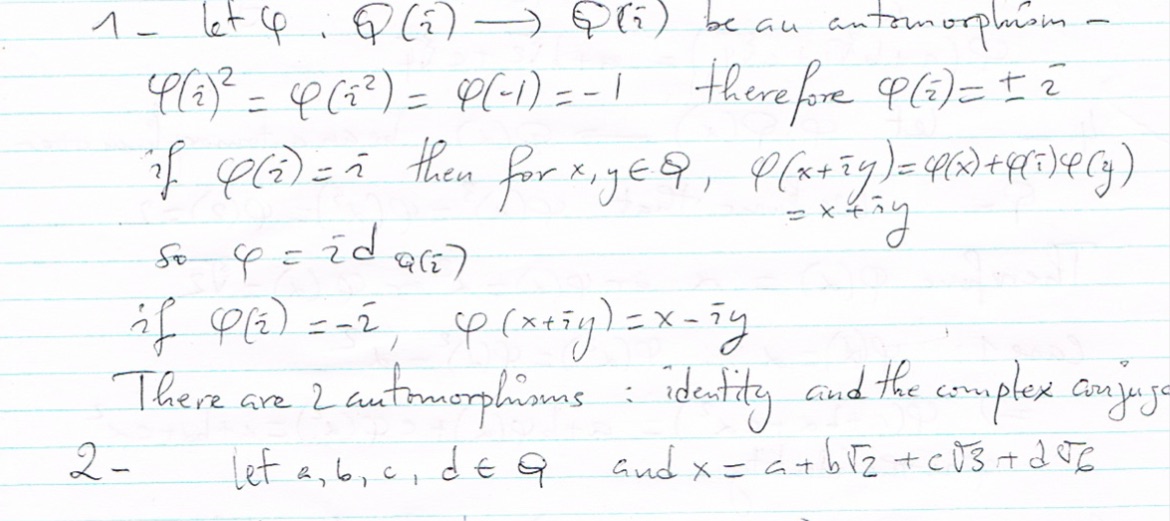 1- let φ : Q(i) ⟶ Q(i) be an automorphism -
φ(i)² = φ(i²) = φ(-1) = -1 therefore φ(i) = ± i
if φ(i) = i then for x, y ∈ Q, φ(x+iy) = φ(x)+φ(i)φ(y)
= x + iy
so φ = id Q(i)
if φ(i) = -i, φ(x+iy) = x - iy
There are 2 automorphisms : identity and the complex conjuga
2- let a, b, c, d ∈ Q and x = a + b√2 + c√3 + d√6